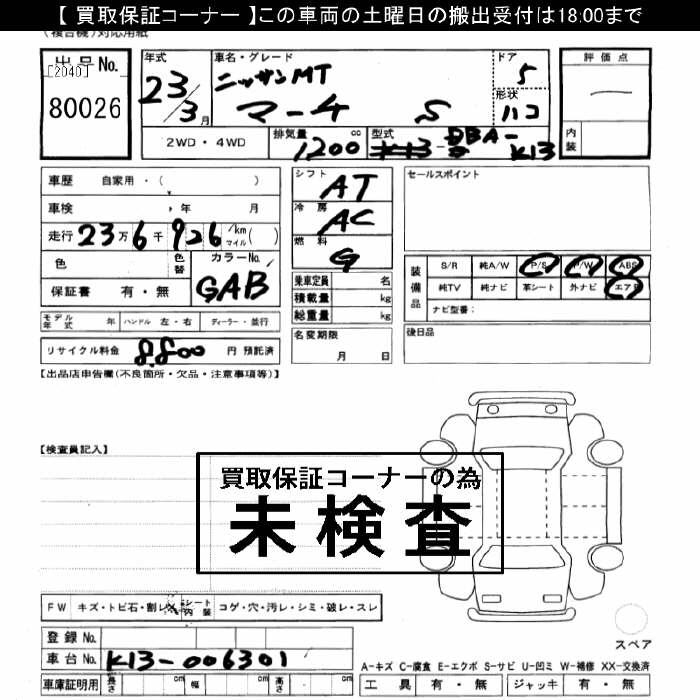 【 買取保証コーナー 】この車両の土曜日の搬出受付は18:00まで
(複合機)対応用紙
出品No.
[2040]
80026
年式
23/3月
車名・グレード
ニッサンMT
マーチ S
ドア
5
形状
ハコ
評価点
内装
2WD・4WD
排気量
1200 cc
型式
K13-DBA-K13
車歴 自家用・( )
車検 年 月
走行 23万6千926 km マイル( )
色
色替
カラーNo.
GAB
保証書 有・無
モデル年式 年 ハンドル 左・右 ディーラー・並行
リサイクル料金 8,800 円 預託済
シフト
AT
冷房
AC
燃料
G
乗車定員 名
積載量 kg
総重量 kg
名変期限
月 日
セールスポイント
装備品
S/R 純A/W P/S P/W ABS
純TV 純ナビ 革シート 外ナビ エアB
ナビ型番:
後日品
【出品店申告欄(不良箇所・欠品・注意事項等)】
【検査員記入】
買取保証コーナーの為
未検査
FW キズ・トビ石・割レ シート内装 コゲ・穴・汚レ・シミ・破レ・スレ
登録No.
車台No. K13-006301
車庫証明用 長さ cm 幅 cm 高さ cm
スペア
A-キズ C-腐食 E-エクボ S-サビ U-凹ミ W-補修 XX-交換済
工具 有・無 ジャッキ 有・無